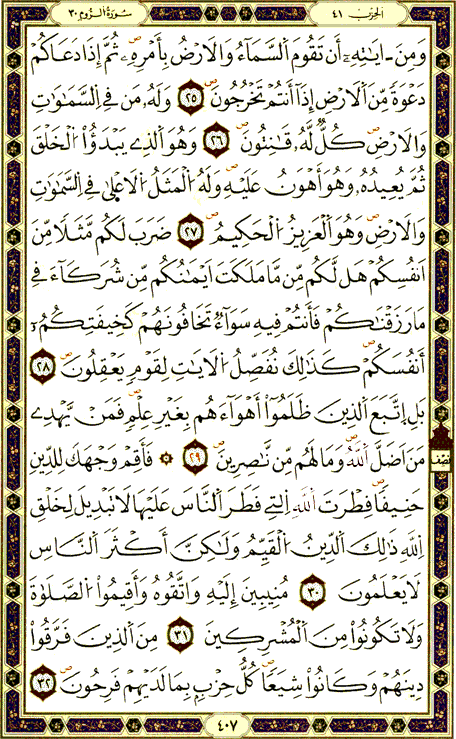 الحزب ٤١
سُورَةُ الرُّومِ ٣٠
وَمِنَ ـ ايَٰتِهِۦٓ أَن تَقُومَ اَ۬لسَّمَآءُ وَالَارْضُ بِأَمْرِهِۦ ثُمَّ إِذَا دَعَاكُمْ
دَعْوَةٗ مِّنَ اَ۬لَارْضِ إِذَآ أَنتُمْ تَخْرُجُونَ ٢٥ وَلَهُۥ مَن فِے اِ۬لسَّمَٰوَٰتِ
وَالَارْضِ كُلّٞ لَّهُۥ قَٰنِتُونَ ٢٦ وَهُوَ اَ۬لذِے يَبْدَؤُاْ اُ۬لْخَلْقَ
ثُمَّ يُعِيدُهُۥ وَهُوَ أَهْوَنُ عَلَيْهِ وَلَهُ اُ۬لْمَثَلُ اُ۬لَاعْلَىٰ فِے اِ۬لسَّمَٰوَٰتِ
وَالَارْضِ وَهُوَ اَ۬لْعَزِيزُ اُ۬لْحَكِيمُ ٢٧ ضَرَبَ لَكُم مَّثَلٗا مِّنَ
اَنفُسِكُمْ هَل لَّكُم مِّن مَّا مَلَكَتَ اَيْمَٰنُكُم مِّن شُرَكَآءَ فِے
مَا رَزَقْنَٰكُمْ فَأَنتُمْ فِيهِ سَوَآءٞ تَخَافُونَهُمْ كَخِيفَتِكُمُۥٓ
أَنفُسَكُمْ كَذَٰلِكَ نُفَصِّلُ اُ۬لَايَٰتِ لِقَوْمٖ يَعْقِلُونَ ٢٨
بَلِ اِ۪تَّبَعَ اَ۬لذِينَ ظَلَمُوٓاْ أَهْوَآءَهُم بِغَيْرِ عِلْمٖ فَمَنْ يَّهْدِے
مَنَ اَضَلَّ اَ۬للَّهُ وَمَا لَهُم مِّن نَّٰصِرِينَ ٢٩ ۞ فَأَقِمْ وَجْهَكَ لِلدِّينِ
نصف
حَنِيفاٗ فِطْرَتَ اَ۬للَّهِ اِ۬لتِے فَطَرَ اَ۬لنَّاسَ عَلَيْهَا لَا تَبْدِيلَ لِخَلْقِ
اِ۬للَّهِ ذَٰلِكَ اَ۬لدِّينُ اُ۬لْقَيِّمُ وَلَٰكِنَّ أَكْثَرَ اَ۬لنَّاسِ
لَا يَعْلَمُونَ ٣٠ مُنِيبِينَ إِلَيْهِ وَاتَّقُوهُ وَأَقِيمُواْ اُ۬لصَّلَوٰةَ
وَلَا تَكُونُواْ مِنَ اَ۬لْمُشْرِكِينَ ٣١ مِنَ اَ۬لذِينَ فَرَّقُواْ
دِينَهُمْ وَكَانُواْ شِيَعاٗ كُلُّ حِزْبِۢ بِمَا لَدَيْهِمْ فَرِحُونَ ٣٢
٤٠٧